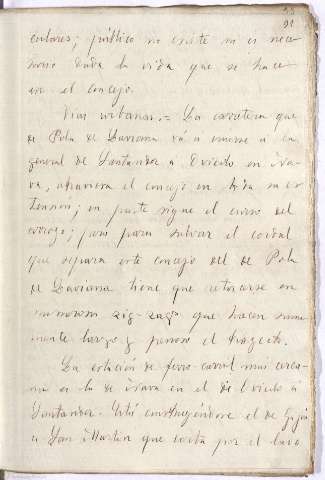 91
culares; público no existe ni es nece-
sario dada la vida que se hace
en el concejo.
Vías urbanas.= La carretera que
de Pola de Laviana vá á unirse á la
general de Santander á Oviedo en Na-
va, atraviesa el concejo en toda su ex-
tensión; en parte sigue el curso del
arroyo; pero para salvar el cordal
que separa este concejo del de Pola
de Laviana tiene que retorcerse en
numerosos zig-zags que hacen suma-
mente largo y penoso el trayecto.
La estación de ferro-carril mas cerca-
na es la de Nava en el de Oviedo á
Santander. Está construyéndose el de Gijón
á San Martín que corta por el lado